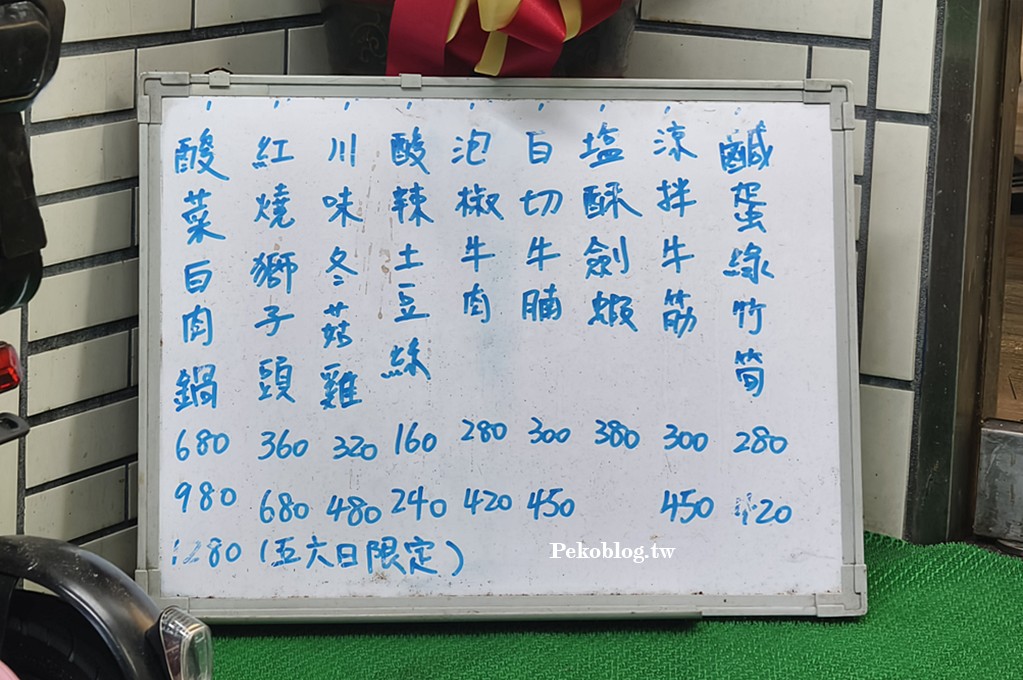 鹹蛋綠竹筍 280 420
涼拌牛筋 300 450
塩酥劍蝦 380
白切牛腩 300 450
泡椒牛肉 280 420
酸辣土豆絲 160 240
川味冬菇雞 320 480
紅燒獅子頭 360 680
酸菜白肉鍋 680 980 1280
(五六日限定)
Pekoblog.tw